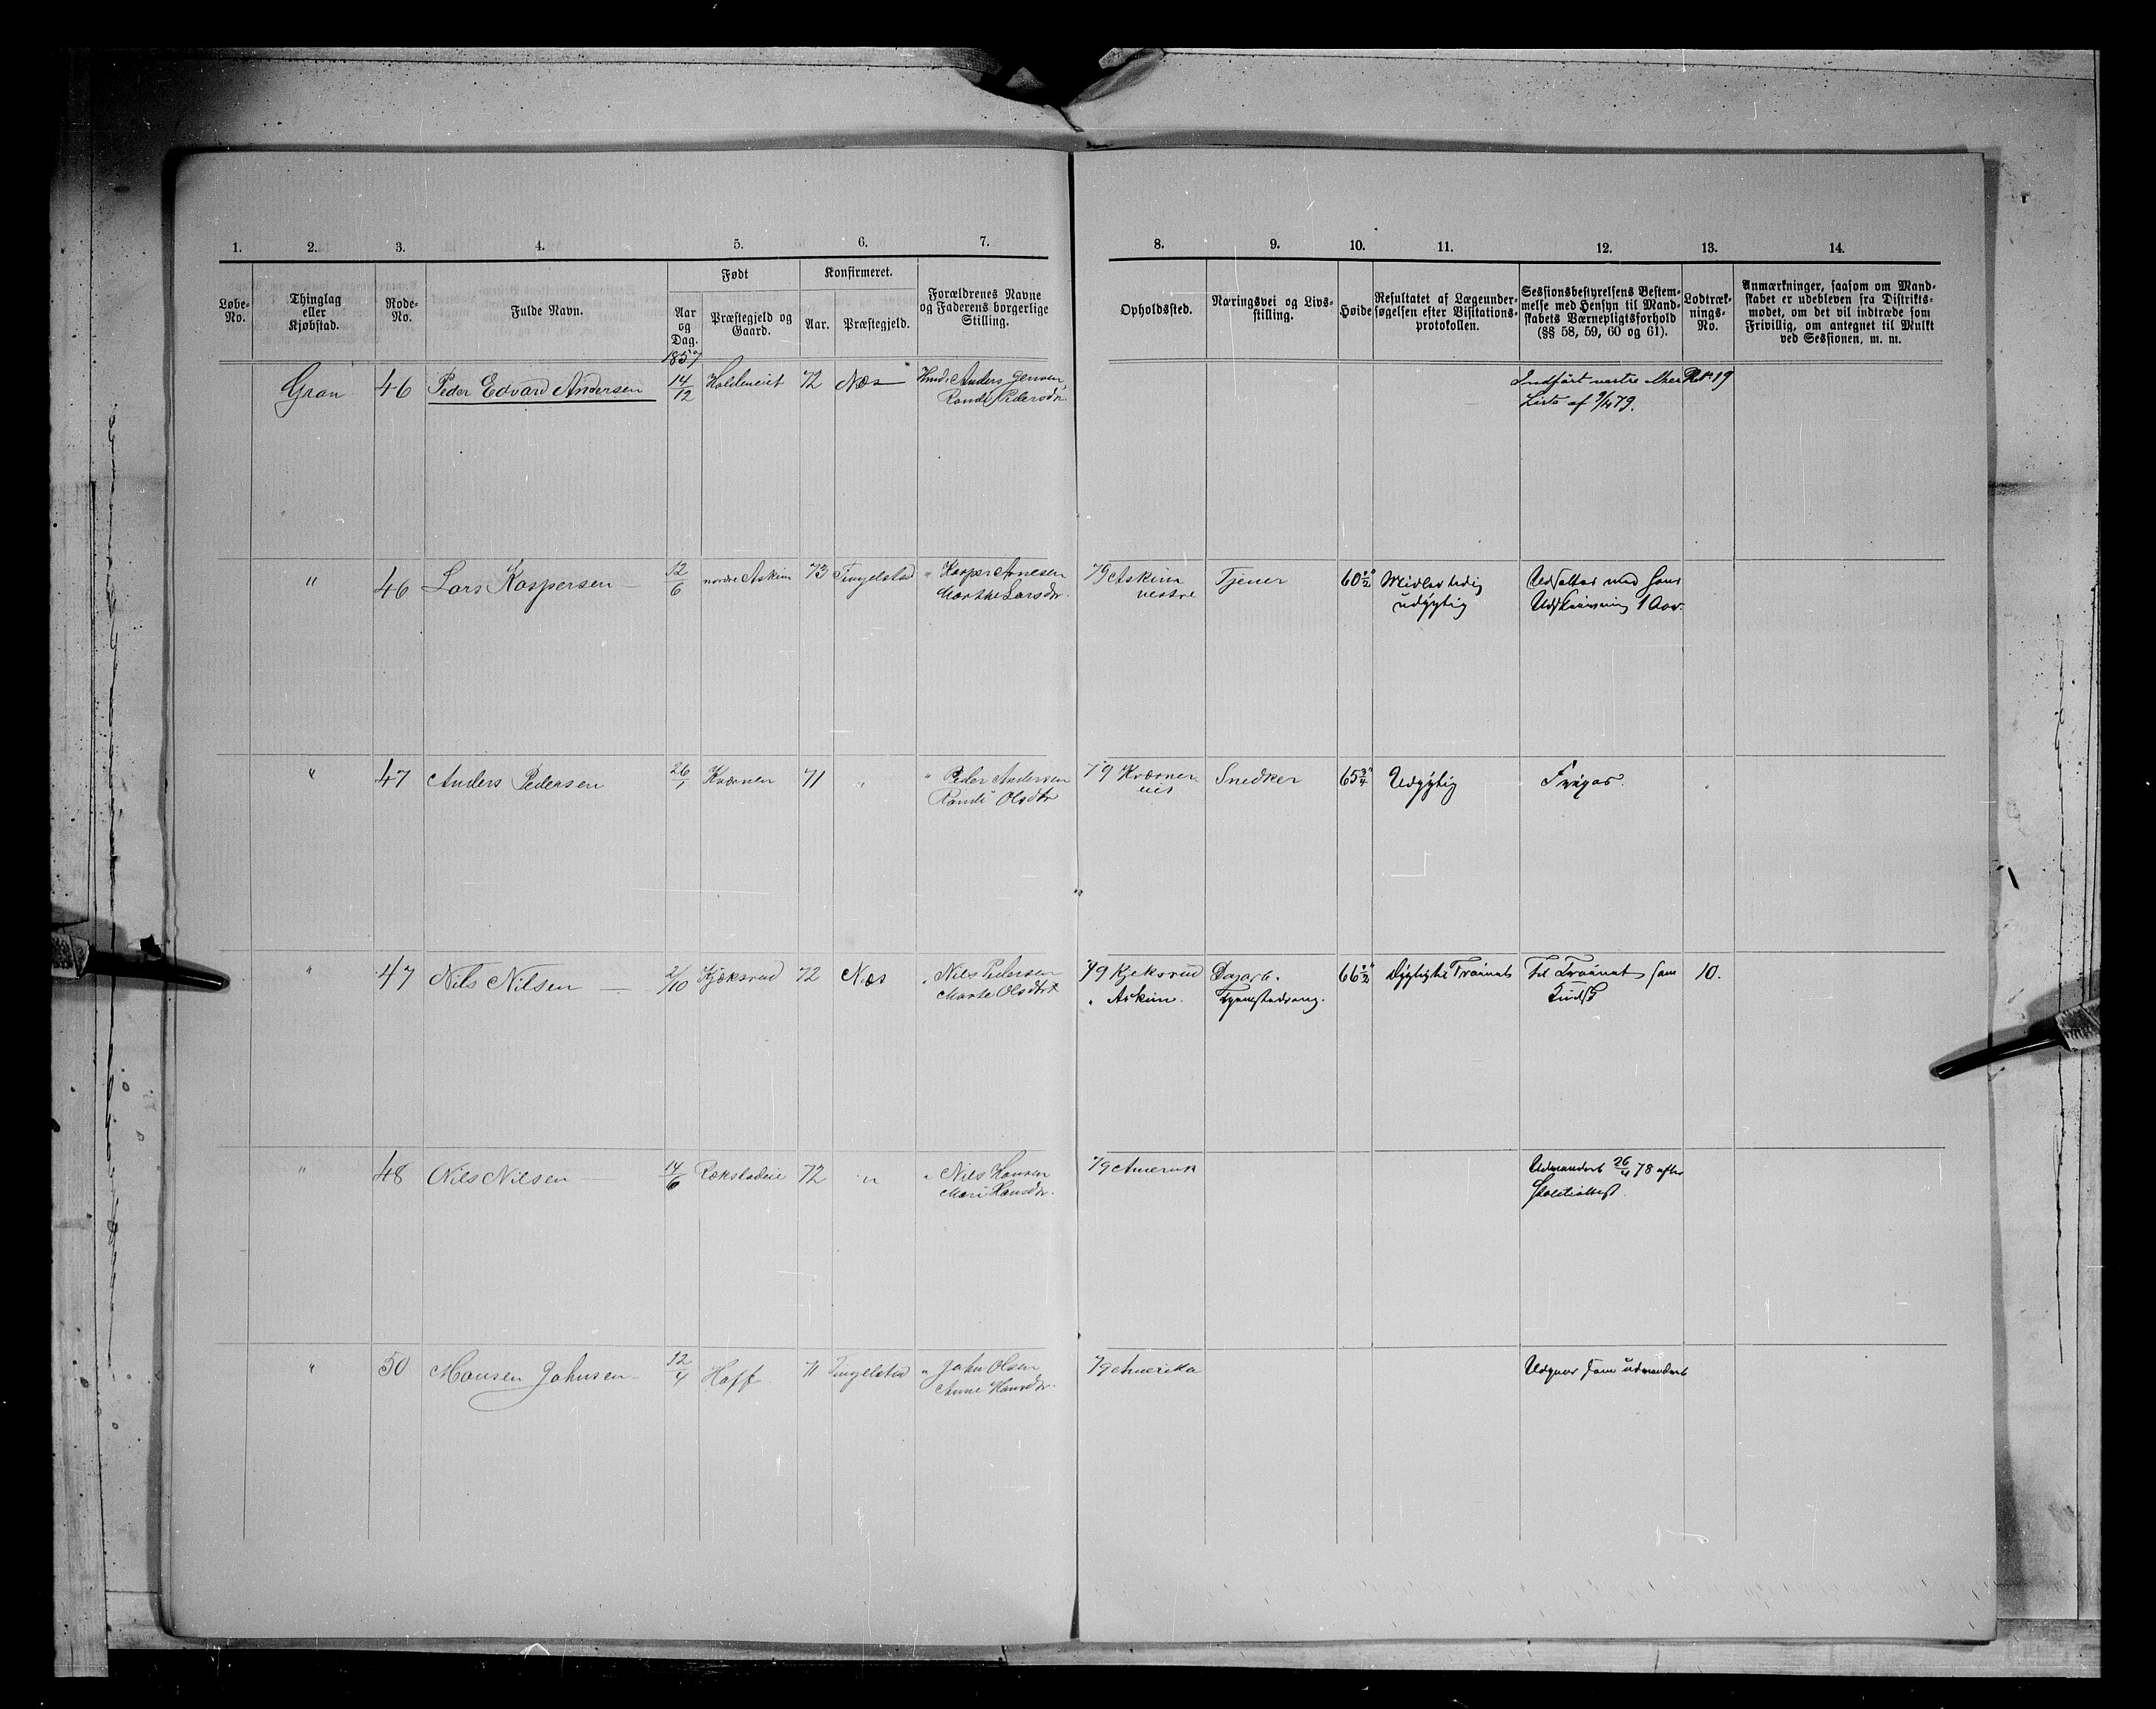 1. 2. 3. 4. 5. 6. 7. 8. 9. 10. 11. 12. 13. 14.
Løbe-No.
Thinglag eller Kjøbstad.
Rode-No.
Fulde Navn.
Født
Aar og Dag.
Præstegjeld og Gaard.
Konfirmeret.
Aar.
Præstegjeld.
Forældrenes Navne og Faderens borgerlige Stilling.
Opholdssted.
Næringsvei og Livsstilling.
Høide
Resultatet af Lægeundersøgelsen efter Visitationsprotokollen.
Sessionsbestyrelsens Bestemmelse med Hensyn til Mandskabets Værnepligtsforhold (§§ 58, 59, 60 og 61).
Lodtræknings-No.
Anmærkninger, saasom om Mandskabet er udebleven fra Distriktsmodet, om det vil indtræde som Frivillig, om antegnet til Mulkt ved Sessionen, m. m.
1857
Gran 46 Peder Edvard Andersen 14/12 72 Næs Anders Jensen, Indført
Randi Pedersdtr Liste af 79.
" 46 Lars Kaspersen 12/6 nordre Askim 73 Tingelstad " Kasper Arnesen 79 Askim Tjener 60 1/2" Midlertidig
Marthe Larsdtr. vestre udygtig Udskrivning 1 Aar.
" 47 Anders Pedersen 26/1 Kværnen 71 " " Peder Andersen 79 Kværner Snedker 65 3/4" Udygtig
Randi Olsdtr eie
" 47 Nils Nilsen 2/10 Kjæksrud 72 Næs " Nils Pedersen 79 Kjeksrud Dagarb. 66 1/2" Dygtig til Trainet Til Trainet som 10.
Marte Olsdtr " Askim. Kudsk
" 48 Nils Nilsen 14/6 Rækstadeie 72 " " Nils Hansen 79 Amerika Udvandret 26/4 78 efter
Mari Hansdtr. Politiattest.
" 50 Hansen Johnsen 12/4 Hoff. 71 Tingelstad " John Olsen 79 Amerika Udgaar som udvandret
Anne Hansdtr.